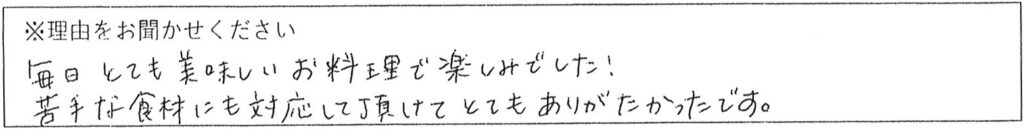 ※理由をお聞かせください
毎日とても美味しいお料理で楽しみでした!
苦手な食材にも対応して頂けてとてもありがたかったです。